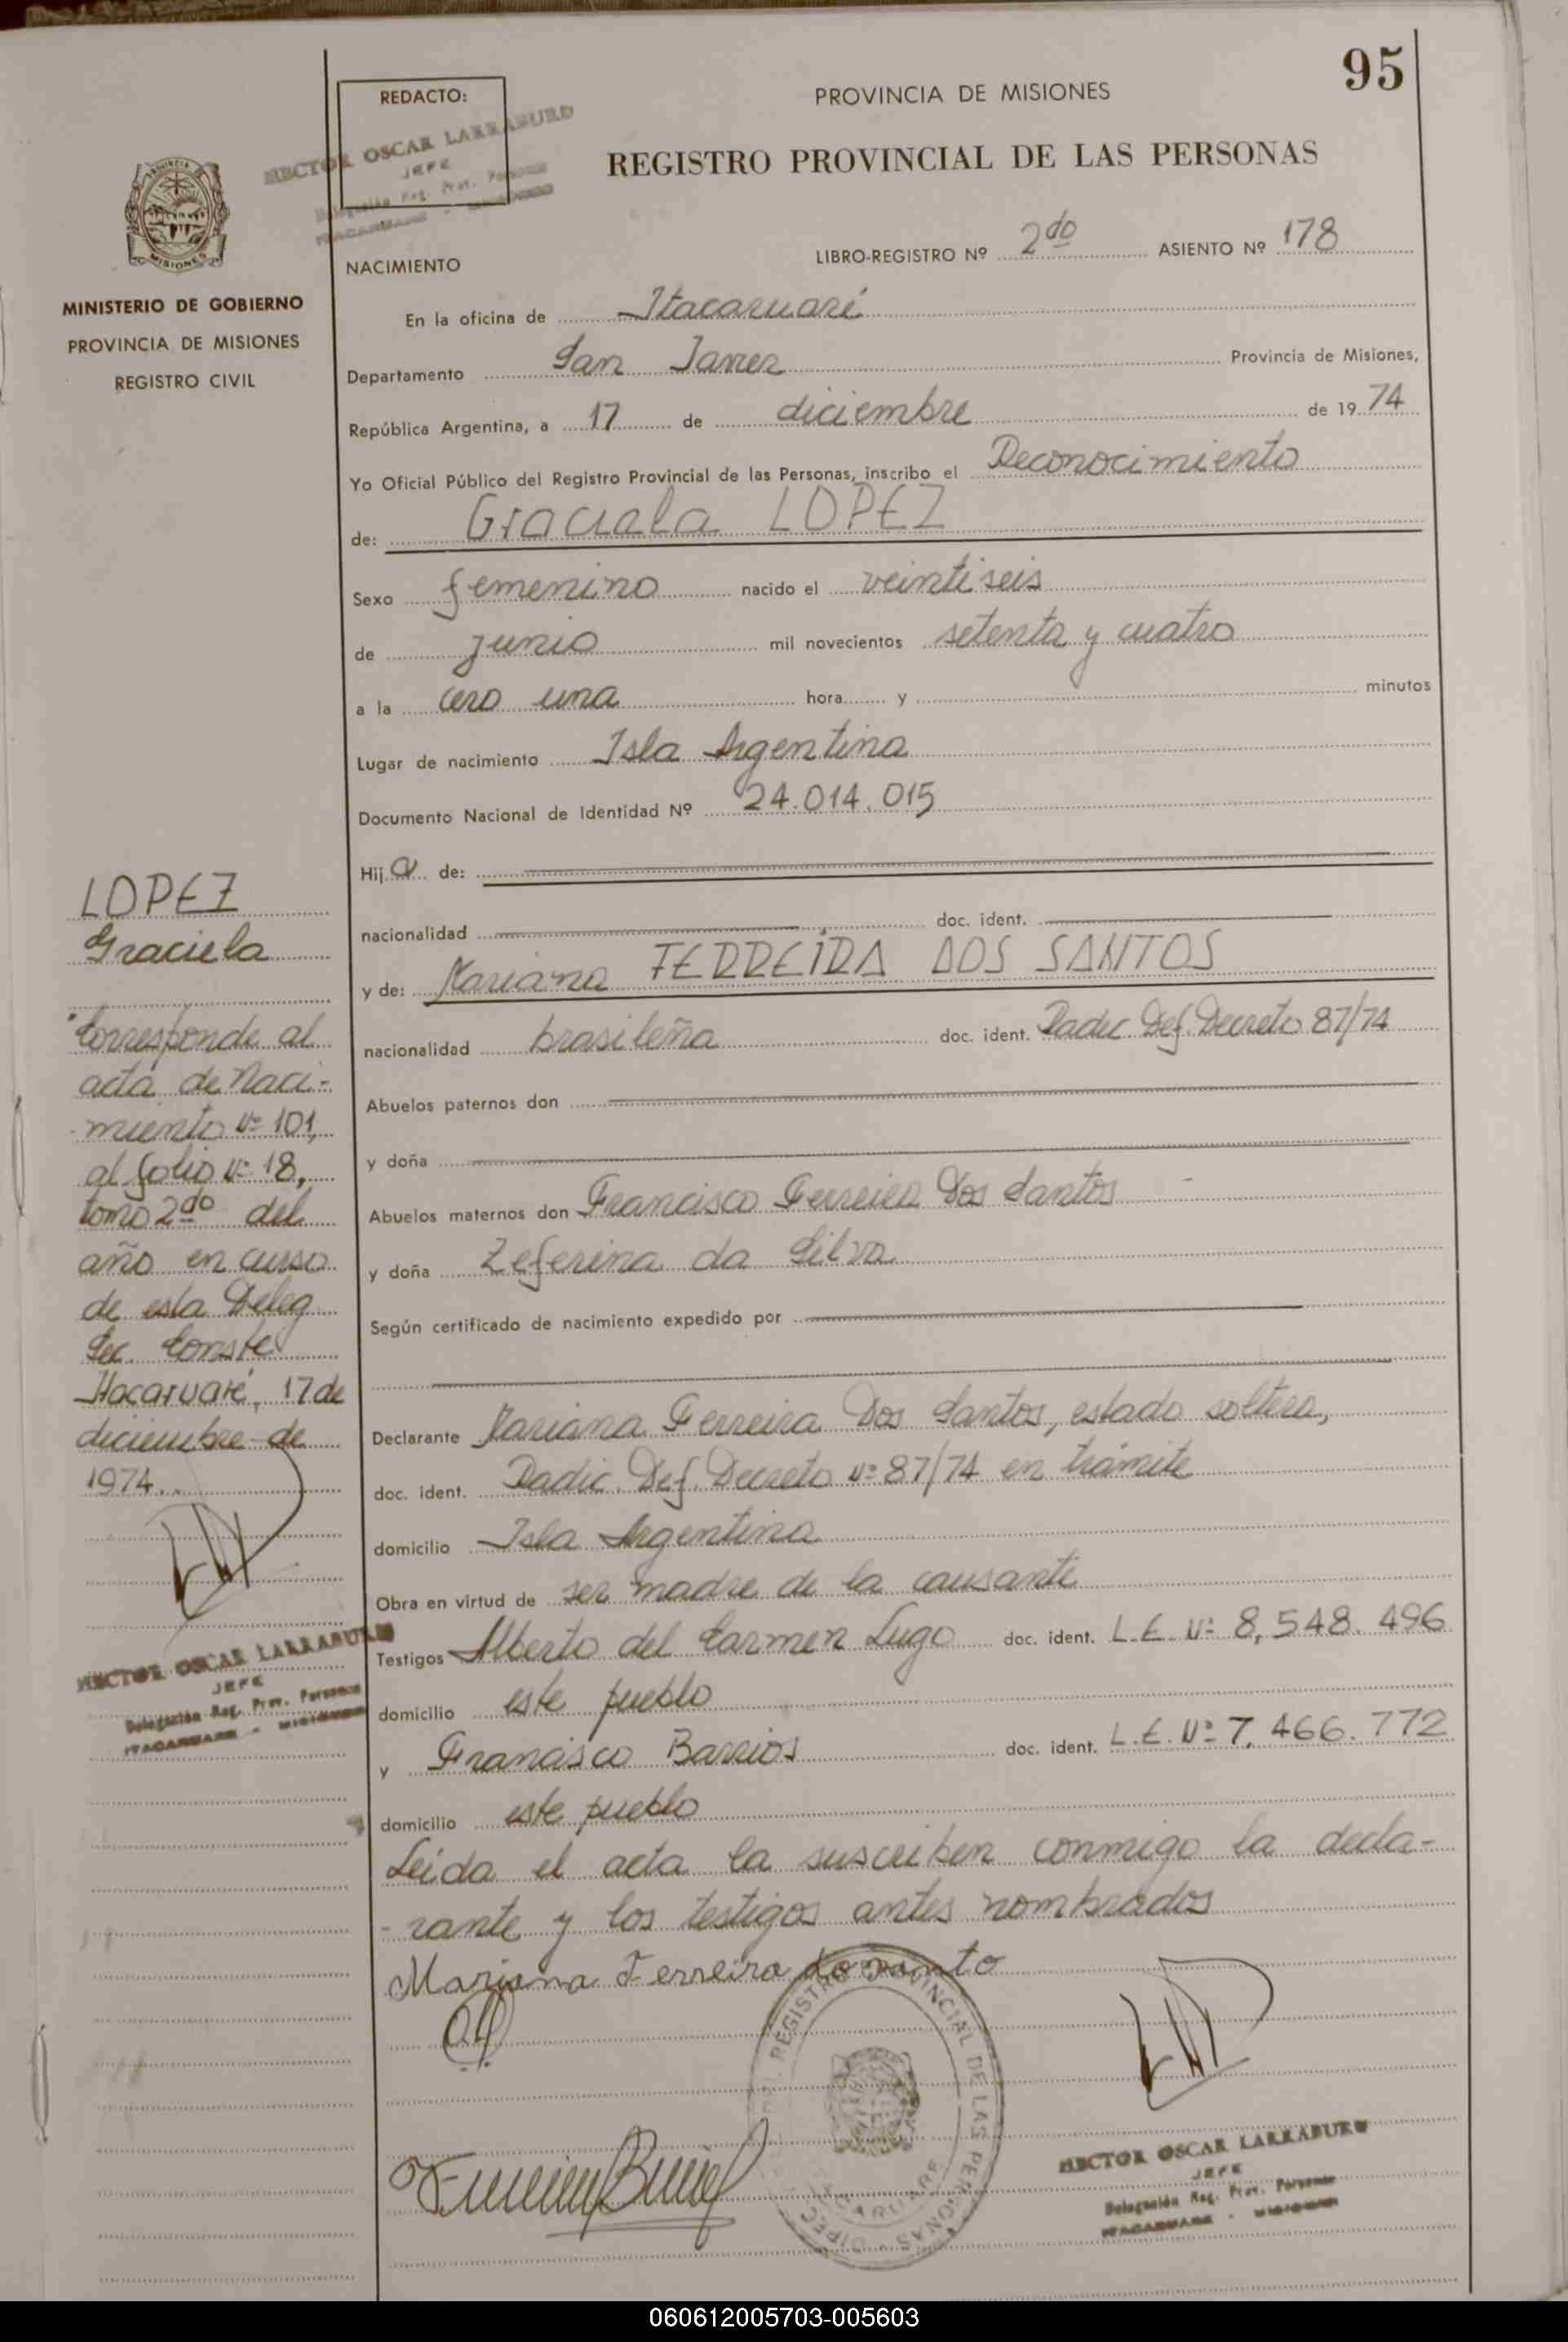 95
REDACTO:
HECTOR OSCAR LARRABURO
JEFE
Delegación Reg. Prov. Personas
ITACARUARE - MISIONES
PROVINCIA DE MISIONES
REGISTRO PROVINCIAL DE LAS PERSONAS
LIBRO-REGISTRO Nº 2do ASIENTO Nº 178
NACIMIENTO
PROVINCIA
MISIONES
MINISTERIO DE GOBIERNO
PROVINCIA DE MISIONES
REGISTRO CIVIL
En la oficina de Itacaruaré
Departamento San Javier Provincia de Misiones,
República Argentina, a 17 de diciembre de 1974
Yo Oficial Público del Registro Provincial de las Personas, inscribo el Reconocimiento
de: Graciela LOPEZ
Sexo femenino nacido el veintiseis
de junio mil novecientos setenta y cuatro
a la cero una hora y minutos
Lugar de nacimiento Isla Argentina
Documento Nacional de Identidad Nº 24.014.015
Hija de:
nacionalidad doc. ident.
y de: Mariana FERREIRA DOS SANTOS
nacionalidad brasileña doc. ident. Radic. Def. Decreto 87/74
Abuelos paternos don
y doña
Abuelos maternos don Francisco Ferreira Dos Santos
y doña Zeferina da Silva
Según certificado de nacimiento expedido por
Declarante Mariana Ferreira Dos Santos, estado soltera,
doc. ident. Radic. Def. Decreto Nº 87/74 en trámite
domicilio Isla Argentina
Obra en virtud de ser madre de la causante
Testigos Alberto del Carmen Lugo doc. ident. L.E. Nº 8,548.496
domicilio este pueblo
y Francisco Barrios doc. ident. L.E. Nº 7.466.772
domicilio este pueblo
Leida el acta la suscriben conmigo la decla-
-rante y los testigos antes nombrados
Mariana Ferreira do santo
REGISTRO PROVINCIAL DE LAS PERSONAS
ITACARUARE
HECTOR OSCAR LARRABURO
JEFE
Delegación Reg. Prov. Personas
ITACARUARE - MISIONES
LOPEZ
Graciela
Corresponde al
acta de Naci-
-miento Nº 101,
al folio Nº 18,
tomo 2do del
año en curso
de esta Deleg
Sec. Conste
Itacaruaré, 17 de
diciembre de
1974.
HECTOR OSCAR LARRABURO
JEFE
Delegación Reg. Prov. Personas
ITACARUARE - MISIONES
060612005703-005603